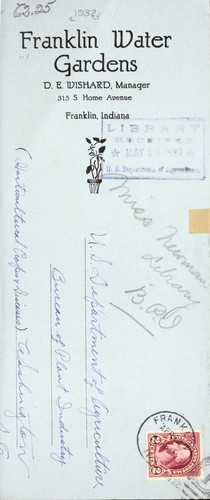 62.25
[1932]
Franklin Water
Gardens
D. E. WISHARD, Manager
315 S. Home Avenue
Franklin, Indiana
LIBRARY
RECEIVED
★ MAY 1932 ★
U. S. Department of Agriculture
Miss Newman
Library
B.P.I.
U.S. Department of Agriculture,
Bureau of Plant Industry
(Horticultural Crops & Diseases) Washington
D.C.
FRANK
2 CENTS 2